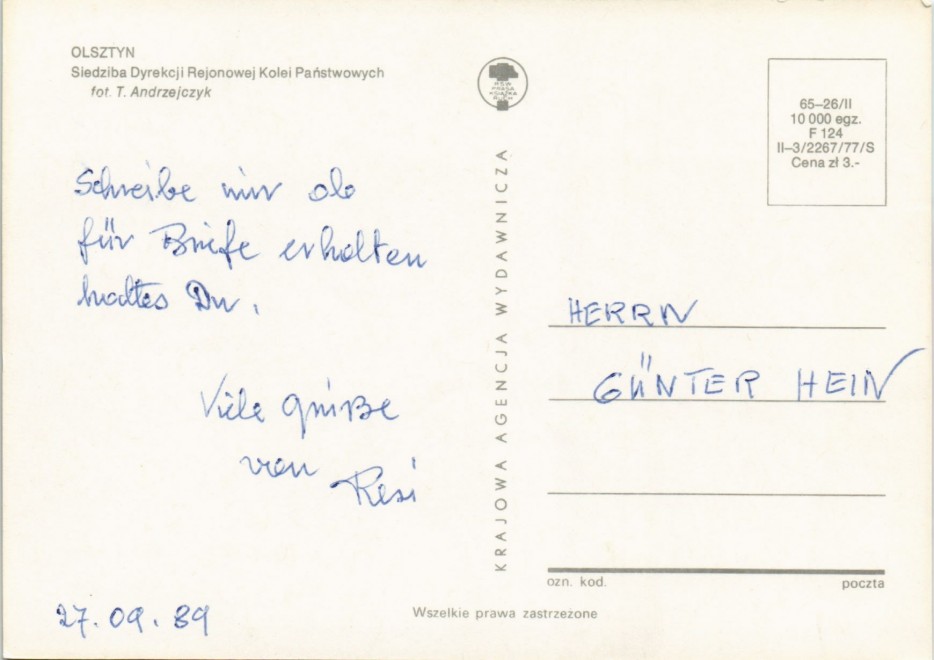 OLSZTYN
Siedziba Dyrekcji Rejonowej Kolei Państwowych
fot. T. Andrzejczyk
Schreibe mir ob
für Briefe erhalten
Du.
Viele grüße
von
Resi
27.09.89
RSW
PRASA
KSIĄŻKA
RUCH
KRAJOWA AGENCJA WYDAWNICZA
65–26/II
10 000 egz.
F 124
II–3/2267/77/S
Cena zł 3.-
HERRN
GÜNTER HEIN
ozn. kod. poczta
Wszelkie prawa zastrzeżone